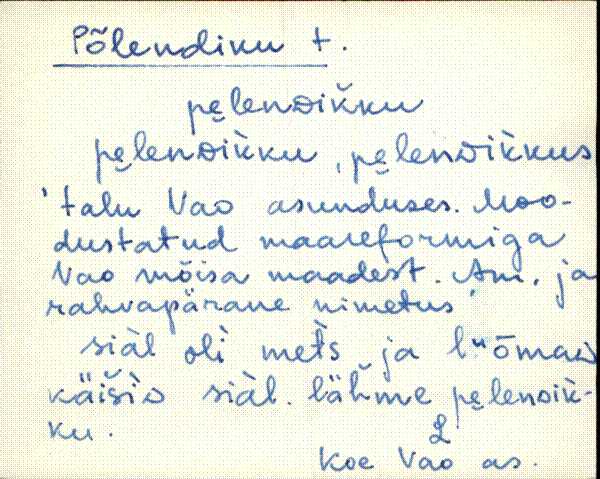 Põlendiku t.
pe̮lenᴅik̆ku
pe̮lenᴅik̀ku, pe̮lenᴅik̀kus
'talu Vao asunduses. Moo-
dustatud maareformiga
Vao mõisa maadest. Am. ja
rahvapärane nimetus'
siàl olì met̀s ja
käiš̀iᴅ siàl. läh̆me pe̮lenᴅik̀-
ku.
Koe Vao as.